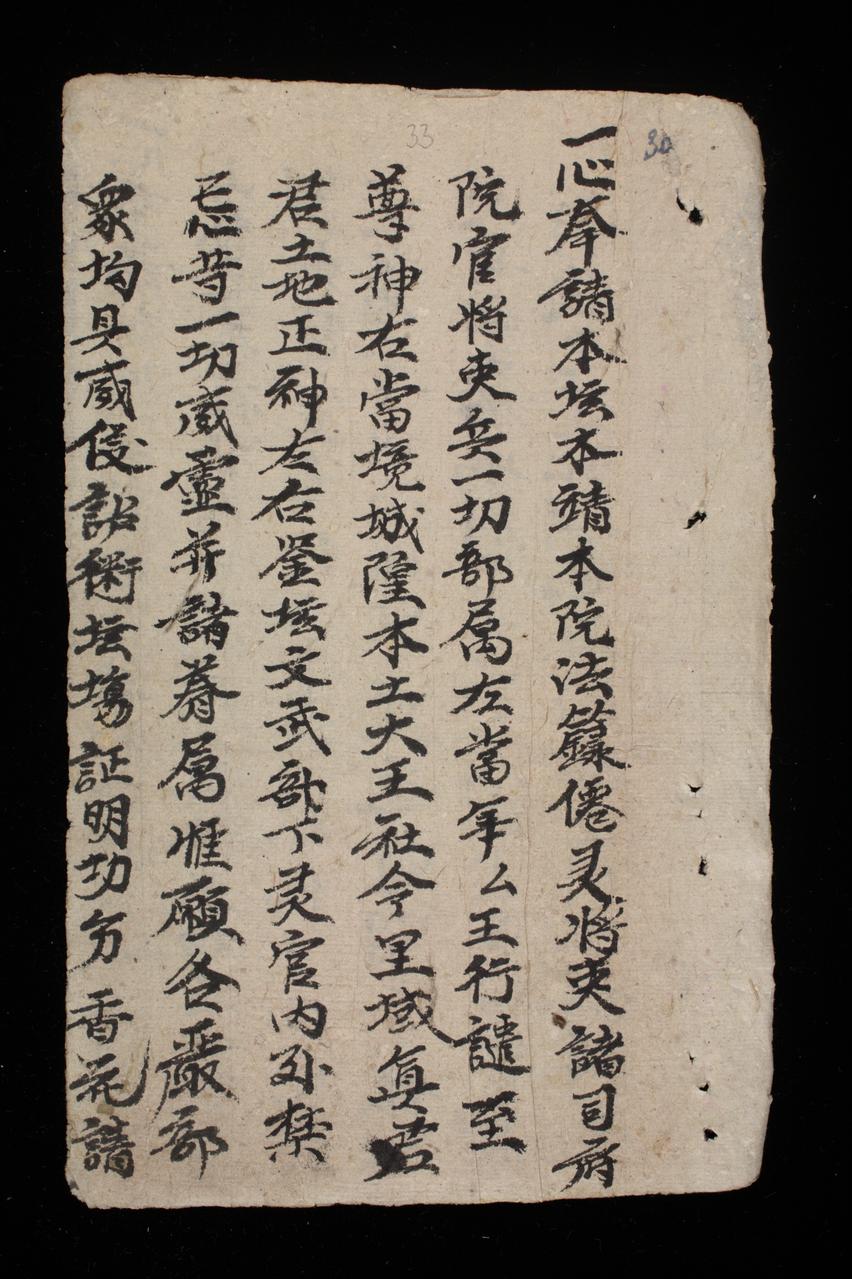 30
33
一心奉請本坛本靖本院法籙僊灵将吏諸司府
院官将吏兵一切部属左當年么王行譴至
尊神右當境城隍本土大王社令里域真君
君土地正神左右鉴坛文武部下灵官内外禁
忌昔一切威靈并諸眷属惟願各嚴部
衆均具威儀詣術坛塲証明功分香花請